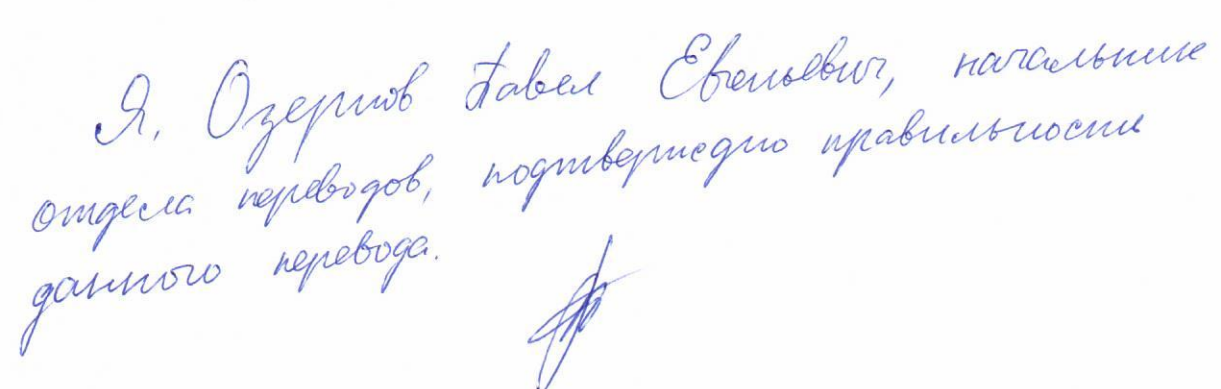 Я, Озернов Павел Евгеньевич, начальник
отдела переводов, подтверждаю правильность
данного перевода.